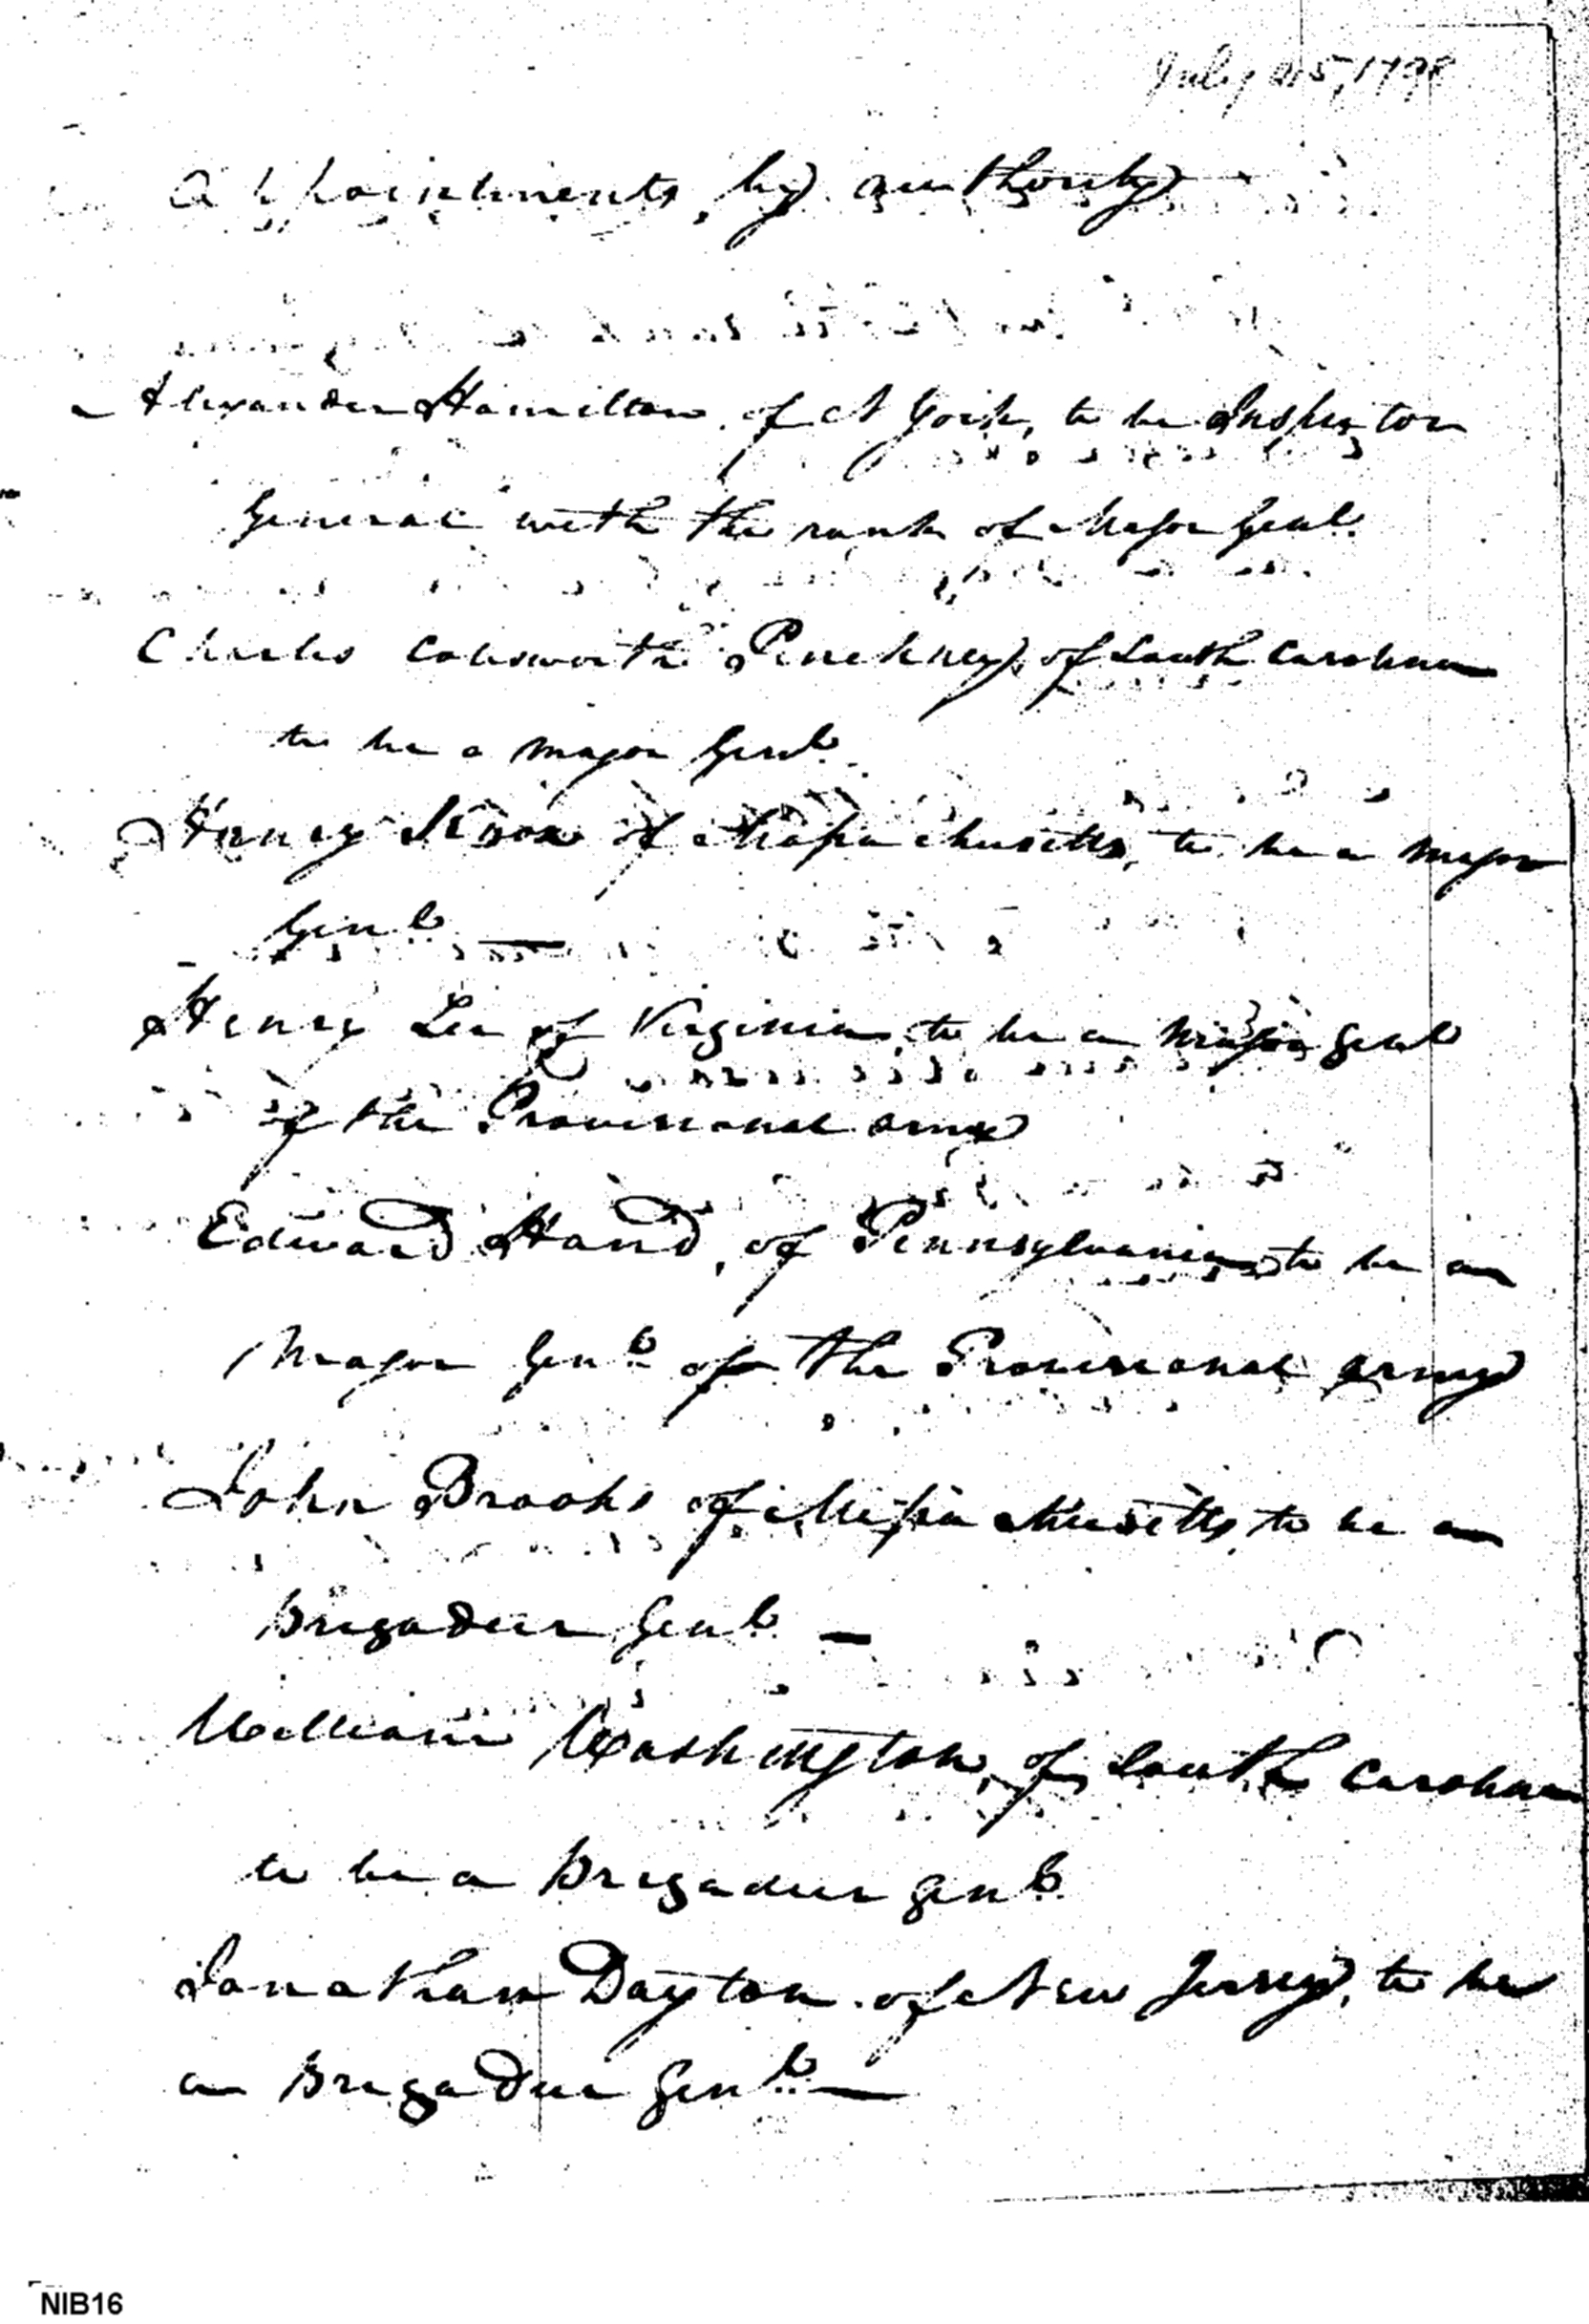 July 25, 1798
Appointments, by authority
Alexander Hamilton, of N York, to be Inspector
General with the rank of Major Genl.
Charles Cotesworth Pinckney, of South Carolina
to be a Major Genl.
Henry Knox of Massachusetts, to be a Major
Genl. —
Henry Lee of Virginia, to be a Major Genl
of the Provisional army
Edward Hand, of Pennsylvania, to be a
Major Genl. of the Provisional army
John Brooks of Massachusetts, to be a
Brigadier Genl. —
William Washington, of South Carolina
to be a Brigadier Genl.
Jonathan Dayton of New Jersey, to be
a Brigadier Genl. —
NIB16